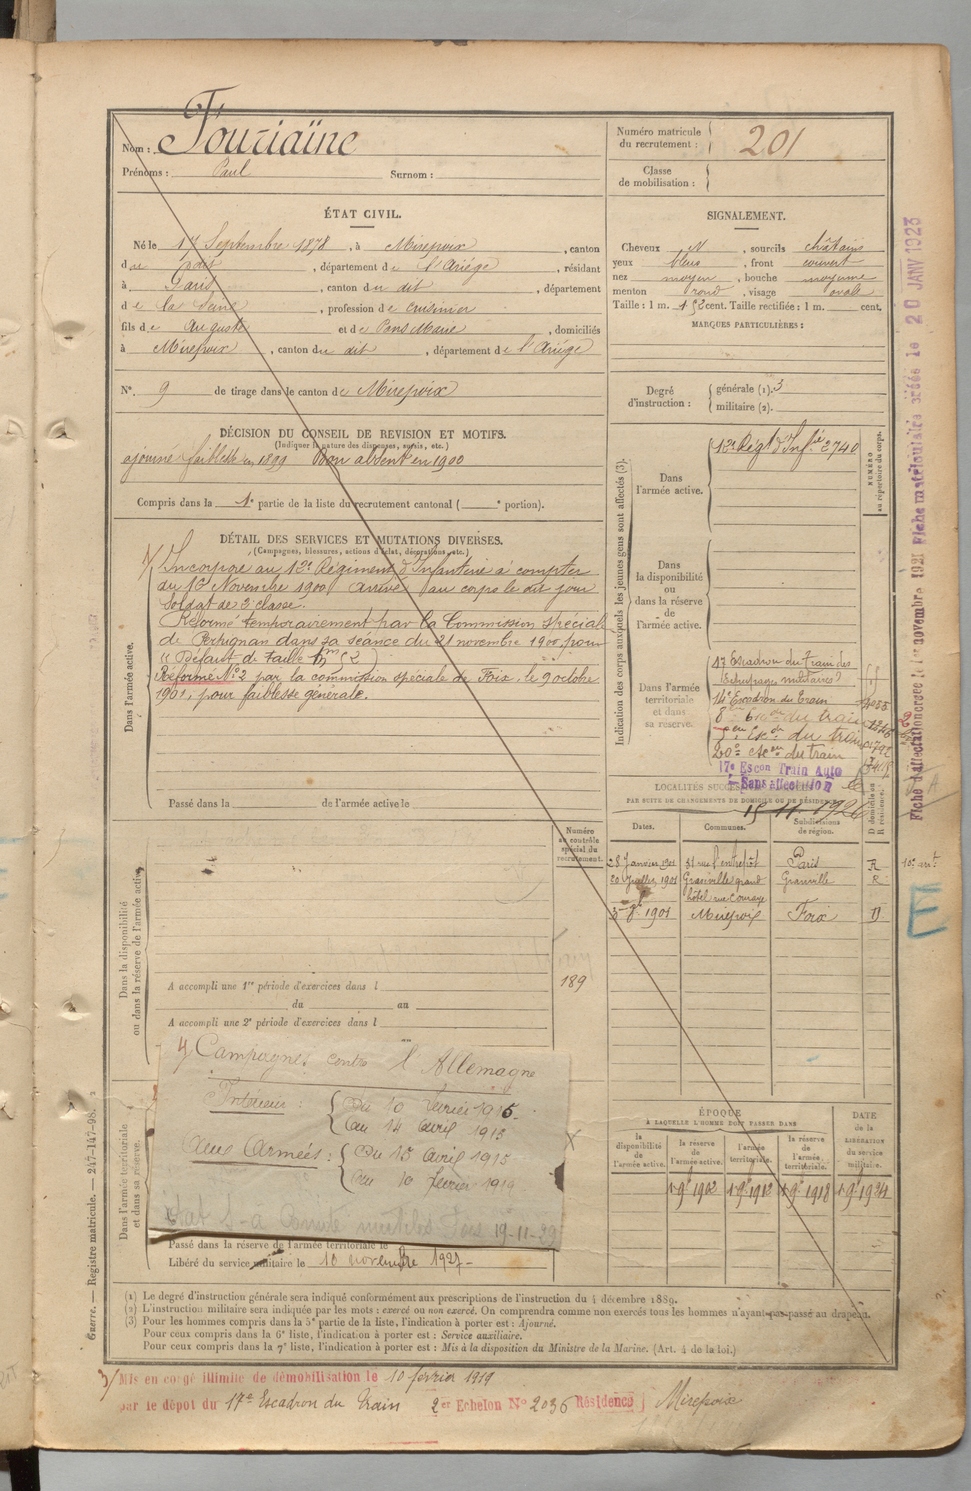 Nom : Fouriaïne
Prénoms : Paul Surnom :
ÉTAT CIVIL.
Né le 17 Septembre 1878, à Mirepoix, canton
du dit, département de l'Ariège, résidant
à Paris, canton du dit, département
de la Seine, profession de cuisinier
fils de Auguste et de Pons Marie, domiciliés
à Mirepoix, canton du dit, département de l'Ariège
N°. 9 de tirage dans le canton de Mirepoix
DÉCISION DU CONSEIL DE REVISION ET MOTIFS.
(Indiquer la nature des dispenses, sursis, etc.)
ajourné faiblesse en 1899 Bon absent en 1900
Compris dans la 1e partie de la liste du recrutement cantonal ( e portion).
DÉTAIL DES SERVICES ET MUTATIONS DIVERSES.
(Campagnes, blessures, actions d'éclat, décorations, etc.)
Dans l'armée active.
Incorporé au 12e Régiment d'Infanterie à compter
du 16 Novembre 1900 Arrivé au corps le dit jour
Soldat de 2e classe.
Réformé temporairement par la Commission spéciale
de Perpignan dans sa séance du 21 novembre 1900, pour
"Défaut de taille 1m 52"
Réformé N°2 par la commission spéciale de Foix, le 9 octobre
1901, pour faiblesse générale.
Passé dans la de l'armée active le
Dans la disponibilité
ou dans la réserve de l'armée active
Numéro
au contrôle
spécial du
recrutement.
189
A accompli une 1re période d'exercices dans l
du au
A accompli une 2e période d'exercices dans l
4/ Campagne contre l'Allemagne
Intérieur : Du 10 février 1915.
au 14 avril 1915
Aux Armées : Du 15 avril 1915
au 10 février 1919
19-11-29
Dans l'armée territoriale
et dans sa réserve.
Passé dans la réserve de l'armée territoriale le
Libéré du service militaire le 10 novembre 1927
Numéro matricule
du recrutement : 201
Classe
de mobilisation :
SIGNALEMENT.
Cheveux N, sourcils châtains
yeux bleus, front couvert
nez moyen, bouche moyenne
menton rond, visage ovale
Taille : 1 m. 52 cent. Taille rectifiée : 1 m. cent.
MARQUES PARTICULIÈRES :
Degré
d'instruction :
générale (1). 3
militaire (2).
Indication des corps auxquels les jeunes gens sont affectés (3).
NUMÉRO
au répertoire du corps.
Dans
l'armée active.
12e Régt d'Infie 2740
Dans
la disponibilité
ou
dans la réserve
de
l'armée active.
Dans l'armée
territoriale
et dans
sa réserve.
17 Escadron du Train des
Equipages militaires
14e Escadron du Train
8e Escon du train
20e escon du train
17e Escon Train Auto
Sans affectation
LOCALITÉS SUCCESSIVES HABITÉES
PAR SUITE DE CHANGEMENTS DE DOMICILE OU DE RÉSIDENCE.
15.11.1926
Dates. Communes. Subdivisions
de région.
D domicile ou
R résidence.
28 Janvier 1901 31 rue l'entrepôt Paris R
20 Juillet 1901 Granville grand Granville R
hôtel rue Couraye
1901 Mirepoix Foix D
ÉPOQUE
À LAQUELLE L'HOMME DOIT PASSER DANS
DATE
de la
LIBÉRATION
du service
militaire.
la
disponibilité
de
l'armée active.
la réserve
de
l'armée active.
l'armée
territoriale.
la réserve
de
l'armée
territoriale.
1 9e 1902 1 9e 1912 1 9e 1918 1 9e 1924
(1) Le degré d'instruction générale sera indiqué conformément aux prescriptions de l'instruction du 4 décembre 1889.
(2) L'instruction militaire sera indiquée par les mots : exercé ou non exercé. On comprendra comme non exercés tous les hommes n'ayant pas passé au drapeau.
(3) Pour les hommes compris dans la 5e partie de la liste, l'indication à porter est : Ajourné.
Pour ceux compris dans la 6e liste, l'indication à porter est : Service auxiliaire.
Pour ceux compris dans la 7e liste, l'indication à porter est : Mis à la disposition du Ministre de la Marine. (Art. 4 de la loi.)
3/ Mis en congé illimité de démobilisation le 10 février 1919
par le dépôt du 17e Escadron du Train 2er Echelon N° 2036 Résidence Mirepoix
Guerre. — Registre matricule. — 247-147-98.
Fiche matriculaire créée le 20 JANV 1923